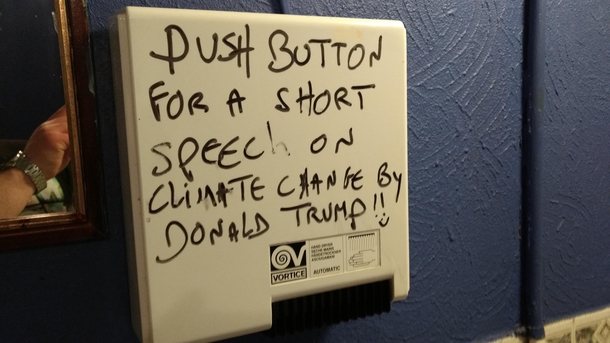 PUSH BUTTON
FOR A SHORT
SPEECh ON
CLIMATE CHANGE By
DONALD TRUMP!!
VORTICE
HAND DRYER
AUTOMATIC